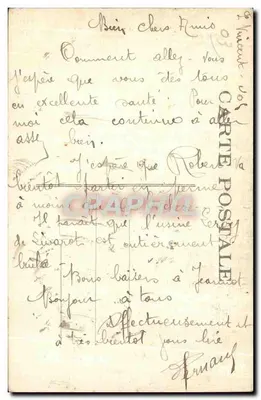 Bien chers Amis
Comment allez-vous
j'espère que vous êtes tous
en excellente santé. Pour
moi cela continue à aller
assez bien.
J'espère que Robert va
bientôt partir en
à moins
Il paraît que l'usine
de Livarot est entièrement
brûlée
Bons baisers à Jeannot
Bonjour à tous
Affectueusement et
à très bientôt vous lire
CARTE POSTALE
CPAPHIL